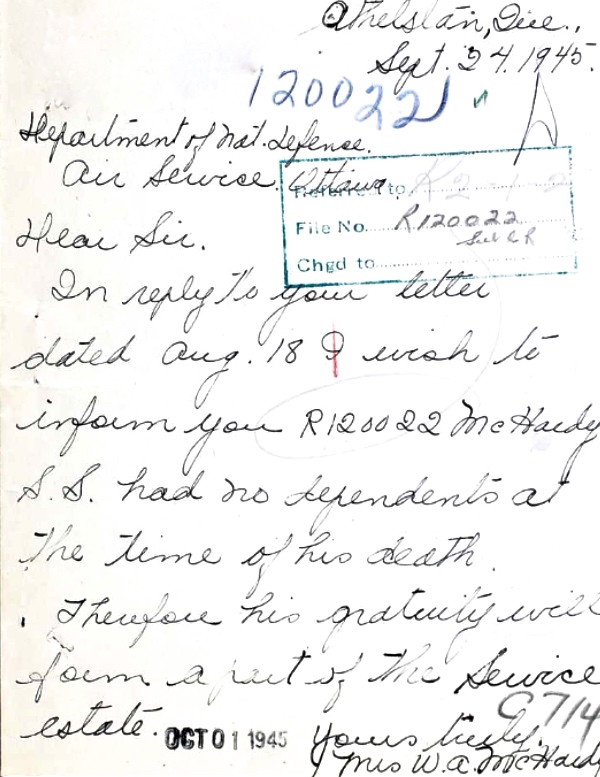 Athelstan, Que.,
Sept. 24. 1945.
120022
Department of Nat. Defence.
Air Service. Ottawa.
Referred to K2-1-2
File No. R120022
Chgd to
Dear Sir.
In reply to your letter
dated Aug. 18 I wish to
inform you R120022 McHardy
S.S. had no dependents at
the time of his death.
Therefore his gratuity will
form a part of the Service
estate.
G714
OCT 01 1945 Yours truly,
Mrs W.A. McHardy